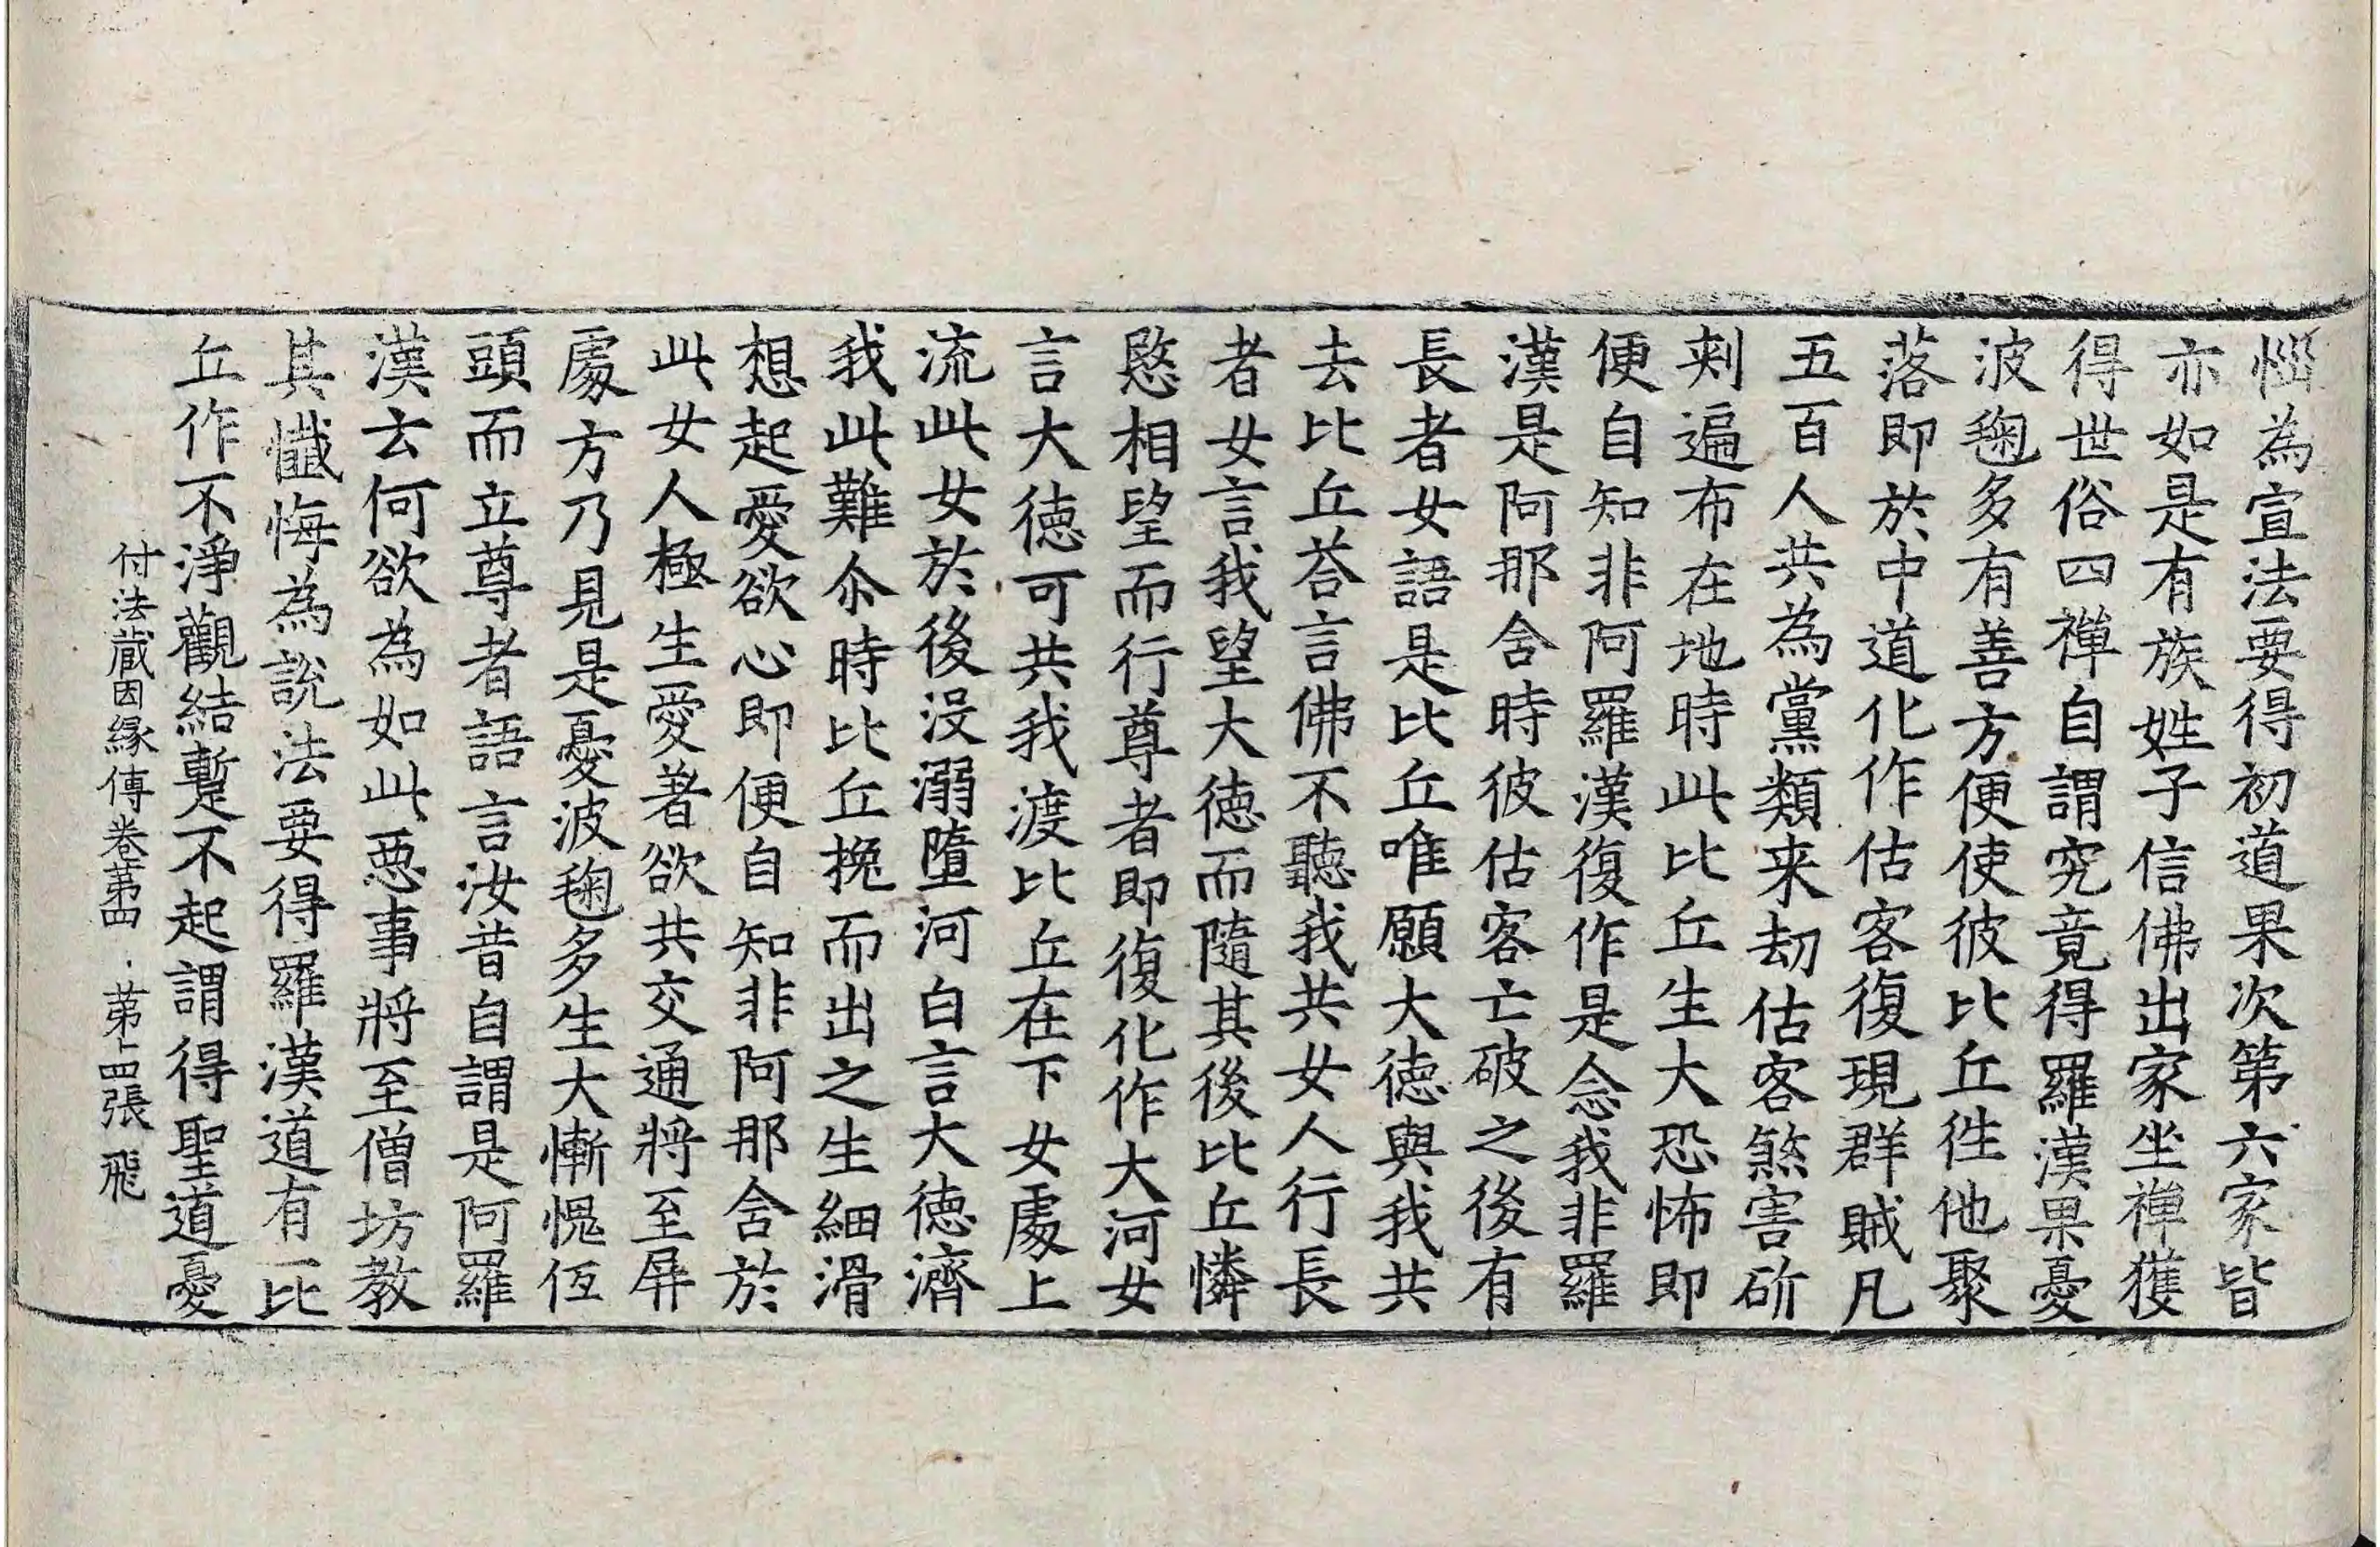 惱為宣法要得初道果次第六家皆
亦如是有族姓子信佛出家坐禪獲
得世俗四禪自謂究竟得羅漢果憂
波毱多有善方便使彼比丘徃他聚
落即於中道化作估客復現群賊凡
五百人共為黨類来劫估客煞害斫
剌遍布在地時此比丘生大恐怖即
便自知非阿羅漢復作是念我非羅
漢是阿那含時彼估客亡破之後有
長者女語是比丘唯願大徳與我共
去比丘荅言佛不聽我共女人行長
者女言我望大徳而隨其後比丘憐
愍相望而行尊者即復化作大河女
言大徳可共我渡比丘在下女處上
流此女於後没溺墮河白言大徳濟
我此難尒時比丘挽而出之生細滑
想起愛欲心即便自知非阿那含於
此女人極生愛著欲共交通將至屏
處方乃見是憂波毱多生大慚愧伍
頭而立尊者語言汝昔自謂是阿羅
漢去何欲為如此惡事將至僧坊教
其懺悔為說法要得羅漢道有一比
丘作不淨觀結蹔不起謂得聖道憂
付法蔵因緣傳卷第四 第十四張 飛